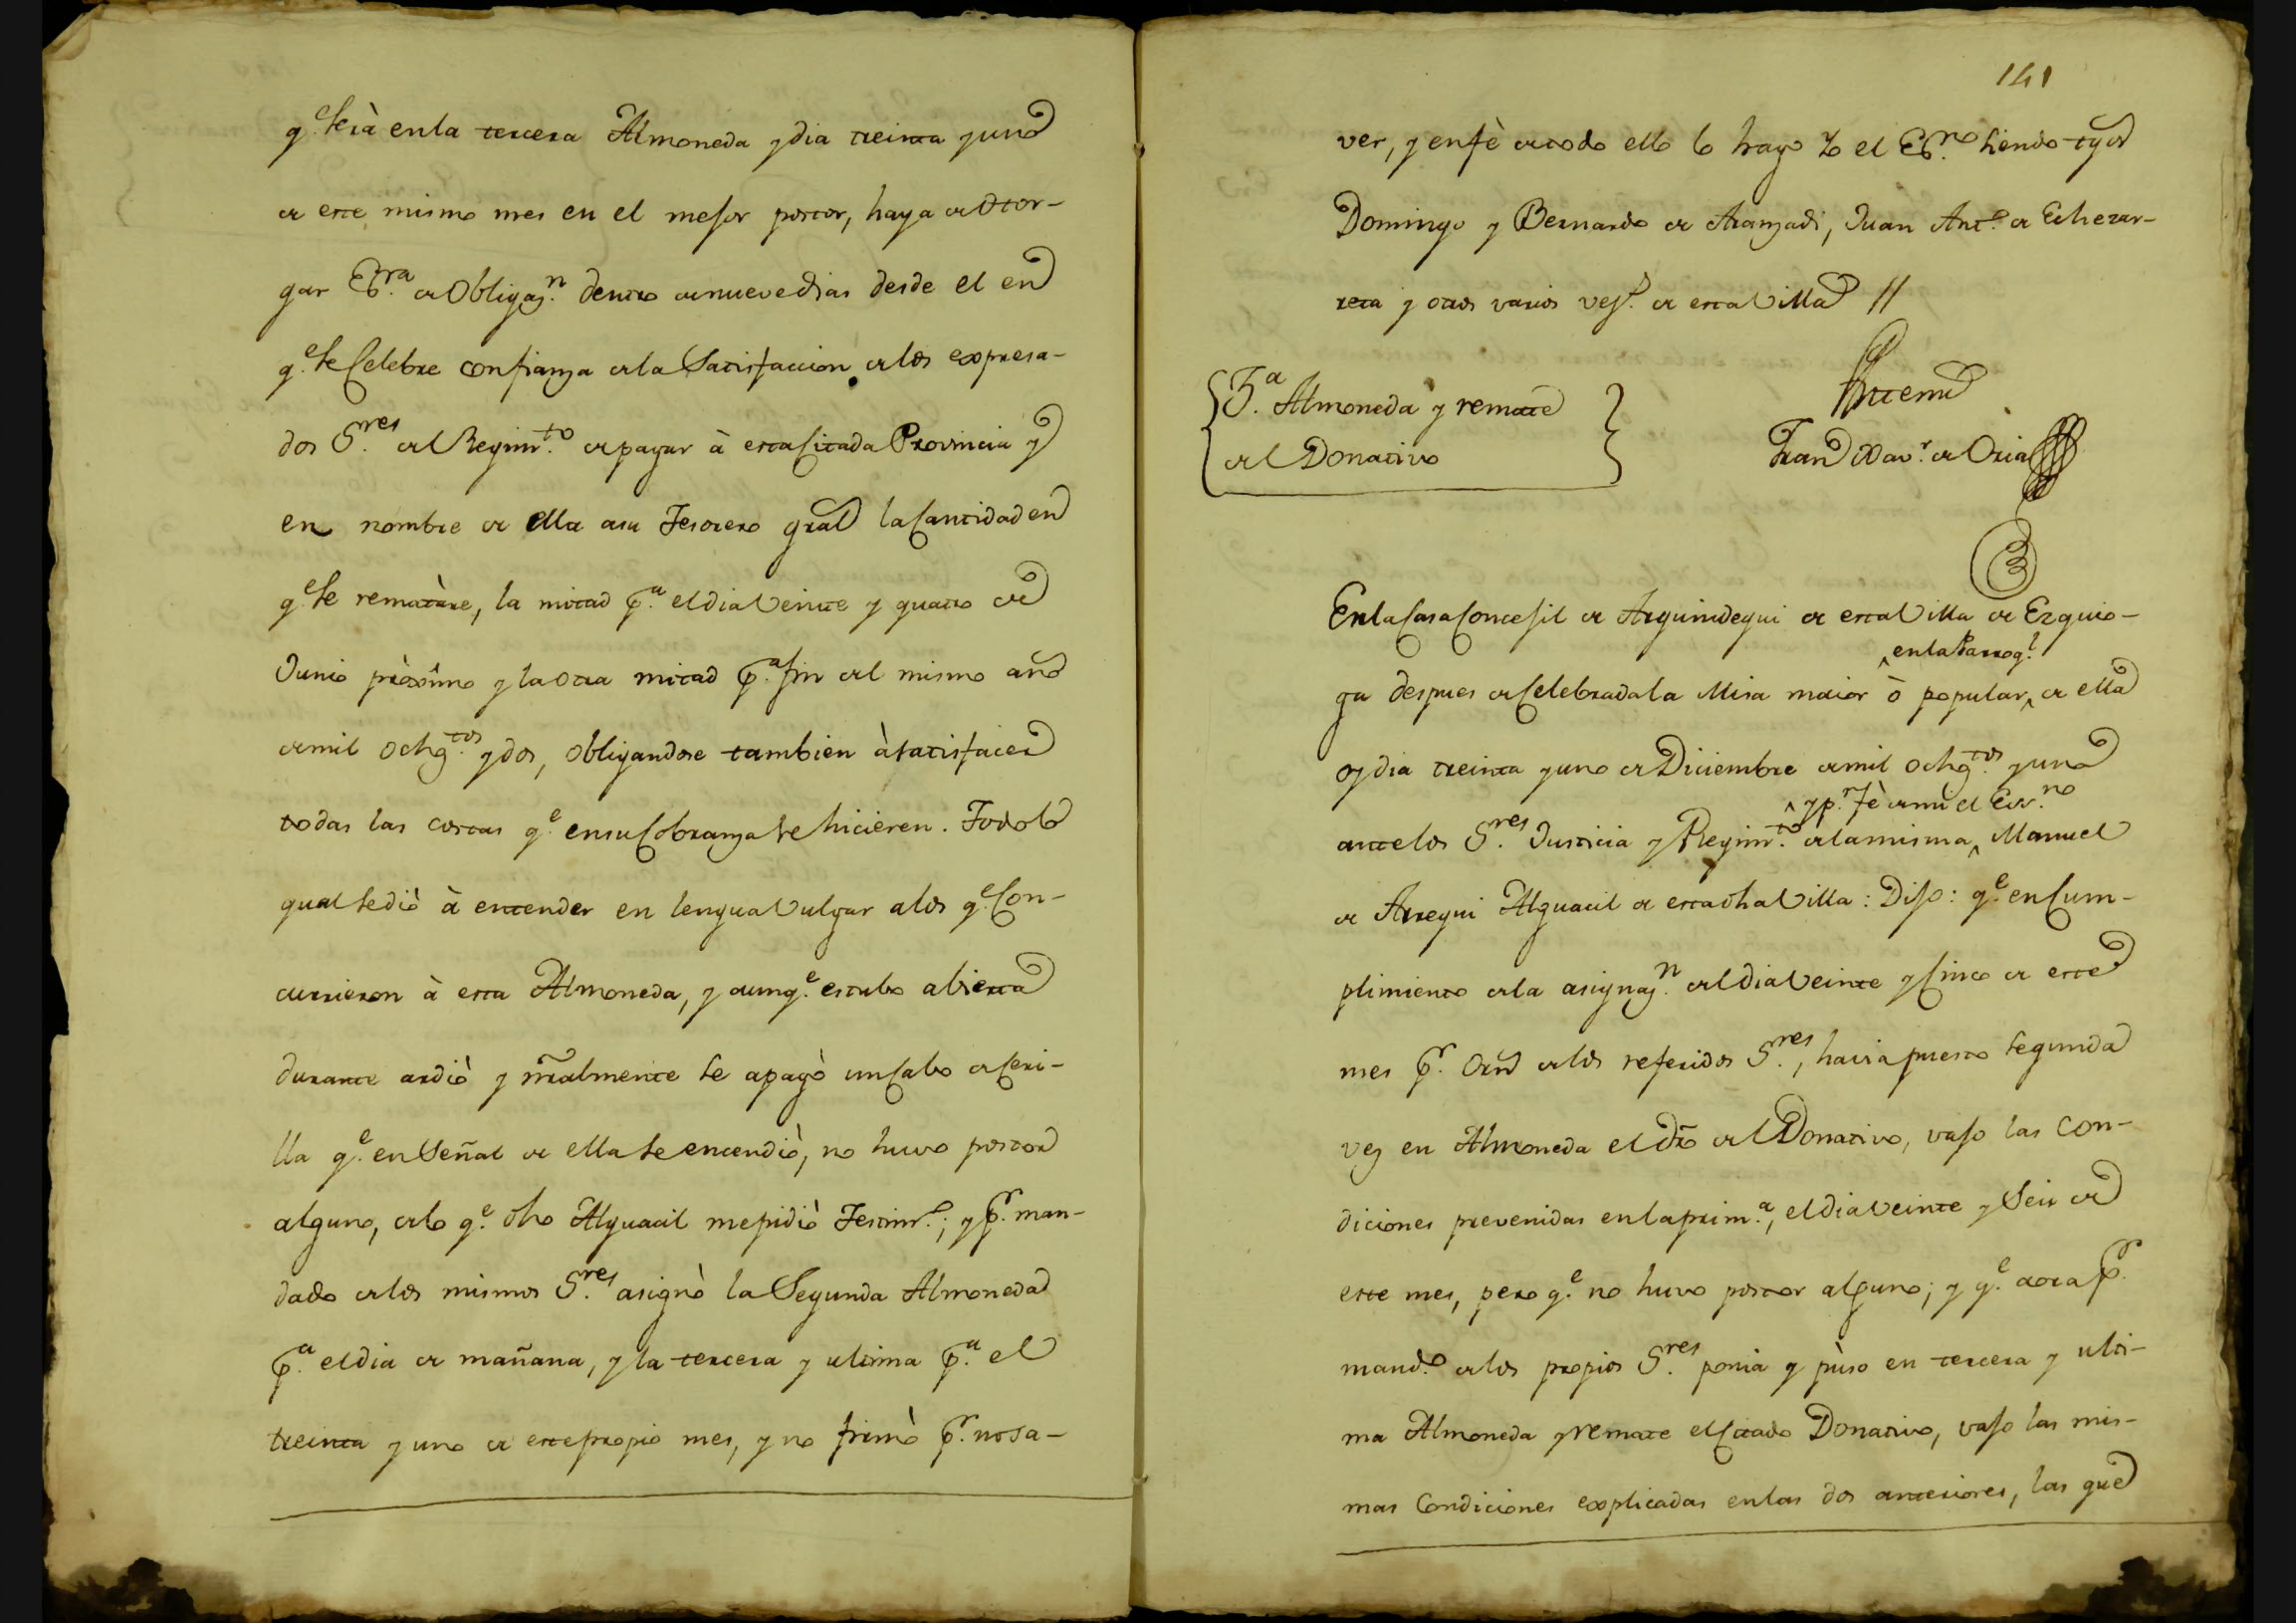 q.e será en la tercera Almoneda y dia treinta y uno
de este mismo mes en el mejor postor, haya de otor-
gar Es.ra de Obligaz.n dentro de nueve dias desde el en
q.e se Celebre con fianza a la Satisfaccion de los expresa-
dos S.res del Regim.to de pagar à esta Citada Provincia y
en nombre de ella a su Tesorero gral la Cantidad en
q.e se rematàre, la mitad p.a el dia Veinte y quatro de
Junio pròximo y la otra mitad p.a fin del mismo año
de mil ochoz.tos y dos, obligandose tambien à satisfacer
todas las costas q.e en su Cobranza se hicieren. Todo lo
qual se diò à entender en lengua Vulgar a los q.e Con-
currieron à esta Almoneda, y aunq.e estubo abierta
durante ardiò y nralmente se apagò un Cabo de Ceri-
lla q.e en Señal de ella se encendiò, no huvo postor
alguno, de lo q.e dho Alguacil me pidiò Testim.o; y p.r man-
dado de los mismos S.res asignò la Segunda Almoneda
p.a el dia de mañana, y la tercera y ultima p.a el
treinta y uno de este propio mes, y no firmò p.r no sa-
141
ver, y en fè de todo ello lo hago Yo el Es.no siendo tgos
Domingo y Bernardo de Aranzadi, Juan Ant.o de Echezar-
reta y otros varios vez.s de esta Villa //
3.a Almoneda y remate
del Donativo
Antemi
Fran.co Xav.r de Oria
En la Casa Concejil de Arguindegui de esta Villa de Ezquio-
en la Parroq.l
ga despues de Celebrada la Misa maior ò popular, de ella
oy dia treinta y uno de Diciembre de mil ochoz.tos y uno
y p.r fè de mi el Ess.no
ante los S.res Justicia y Regim.to de la misma Manuel
de Arregui Alguacil de esta dha Villa: Dijo: q.e en Cum-
plimiento de la asignaz.n del dia Veinte y Cinco de este
mes p.r Orn de los referidos S.res, havia puesto segunda
vez en Almoneda el dro del Donativo, vajo las con-
diciones prevenidas en la prim.a, el dia veinte y Seis de
este mes, pero q.e no huvo postor alguno; y q.e aora p.r
mand.o de los propios S.res ponia y pùso en tercera y ulti-
ma Almoneda y remate el Citado Donativo, vajo las mis-
mas Condiciones explicadas en las dos anteriores, las que